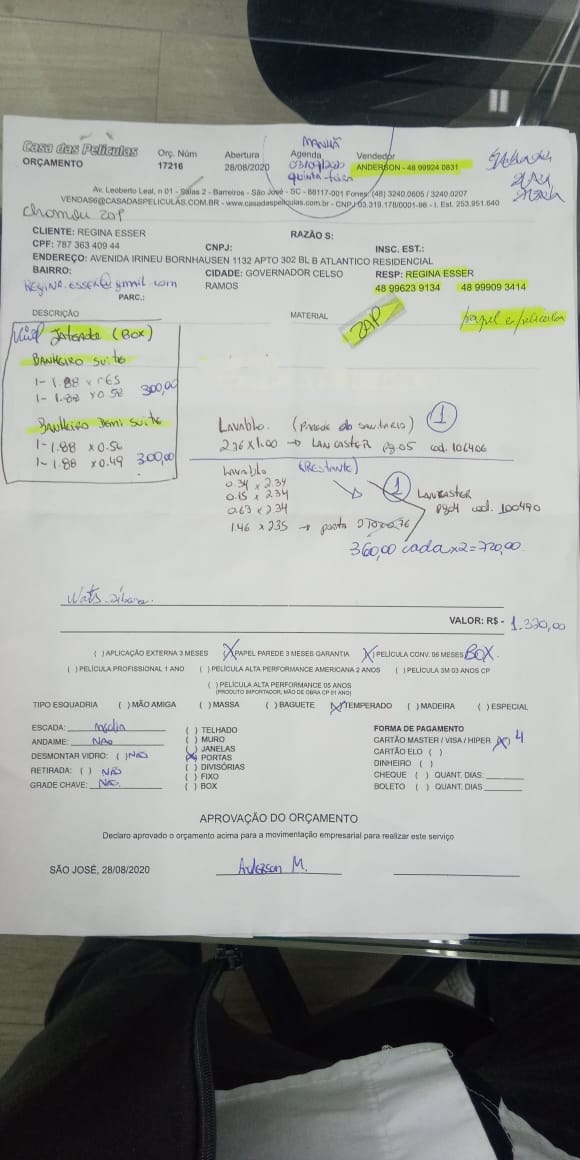 Casa das Películas
ORÇAMENTO
Orç. Núm
17216
Abertura
28/08/2020
MANHÃ
Agenda
03/09/2020
quinta-feira
Vendedor
ANDERSON - 48 99924 0831
Av. Leoberto Leal, n 01 - Salas 2 - Barreiros - São José - SC - 88117-001 Fones: (48) 3240.0605 / 3240.0207
VENDAS6@CASADASPELICULAS.COM.BR - www.casadaspeliculas.com.br - CNPJ 03.319.178/0001-96 - I. Est. 253.951.640
chamou zap
CLIENTE: REGINA ESSER
RAZÃO S:
CPF: 787 363 409 44
CNPJ:
INSC. EST.:
ENDEREÇO: AVENIDA IRINEU BORNHAUSEN 1132 APTO 302 BL B ATLANTICO RESIDENCIAL
BAIRRO:
CIDADE: GOVERNADOR CELSO RAMOS
RESP: REGINA ESSER
REGINA.ESSER@gmail.com
48 99623 9134 48 99909 3414
PARC.:
DESCRIÇÃO
MATERIAL
ZAP
papel e películas
Jateado (BOX)
BANHEIRO suite
1- 1.88 x 0.65
1- 1.88 x 0.58 300,00
Banheiro Demi suite
1- 1.88 x 0.56
1- 1.88 x 0.49 300,00
Lavabo. (Parede do sanitário) 1
2.36 x 1.00 → LANCASTER pg.05 cod. 106406
Lavabo (Restante)
0.34 x 2.34
0.15 x 2.34
0.63 x 2.34
1.46 x 2.35 → porta
1 LANCASTER
cod. 100490
360,00 cada x2 = 720,00
VALOR: R$ - 1.320,00
( ) APLICAÇÃO EXTERNA 3 MESES (X) PAPEL PAREDE 3 MESES GARANTIA (X) PELÍCULA CONV. 06 MESES BOX.
( ) PELÍCULA PROFISSIONAL 1 ANO ( ) PELÍCULA ALTA PERFORMANCE AMERICANA 2 ANOS ( ) PELÍCULA 3M 03 ANOS CP
( ) PELÍCULA ALTA PERFORMANCE 05 ANOS
(PRODUTO IMPORTADOR, MÃO DE OBRA CP 01 ANO)
TIPO ESQUADRIA ( ) MÃO AMIGA ( ) MASSA ( ) BAGUETE (X) TEMPERADO ( ) MADEIRA ( ) ESPECIAL
ESCADA: média
ANDAIME: NÃO
DESMONTAR VIDRO: ( ) NÃO
RETIRADA: ( ) NÃO
GRADE CHAVE: NÃO
( ) TELHADO
( ) MURO
( ) JANELAS
(X) PORTAS
( ) DIVISÓRIAS
( ) FIXO
( ) BOX
FORMA DE PAGAMENTO
CARTÃO MASTER / VISA / HIPER (X) 4
CARTÃO ELO ( )
DINHEIRO ( )
CHEQUE ( ) QUANT. DIAS:
BOLETO ( ) QUANT. DIAS
APROVAÇÃO DO ORÇAMENTO
Declaro aprovado o orçamento acima para a movimentação empresarial para realizar este serviço
SÃO JOSÉ, 28/08/2020
Anderson M.